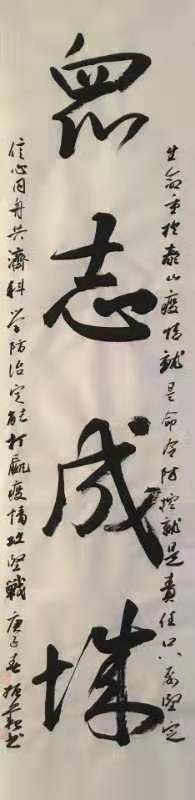 眾志成城
生命重於泰山疫情就是命令防控就是責任只要堅定
信心同舟共濟科学防治定能打贏疫情攻堅戰 庚子春振